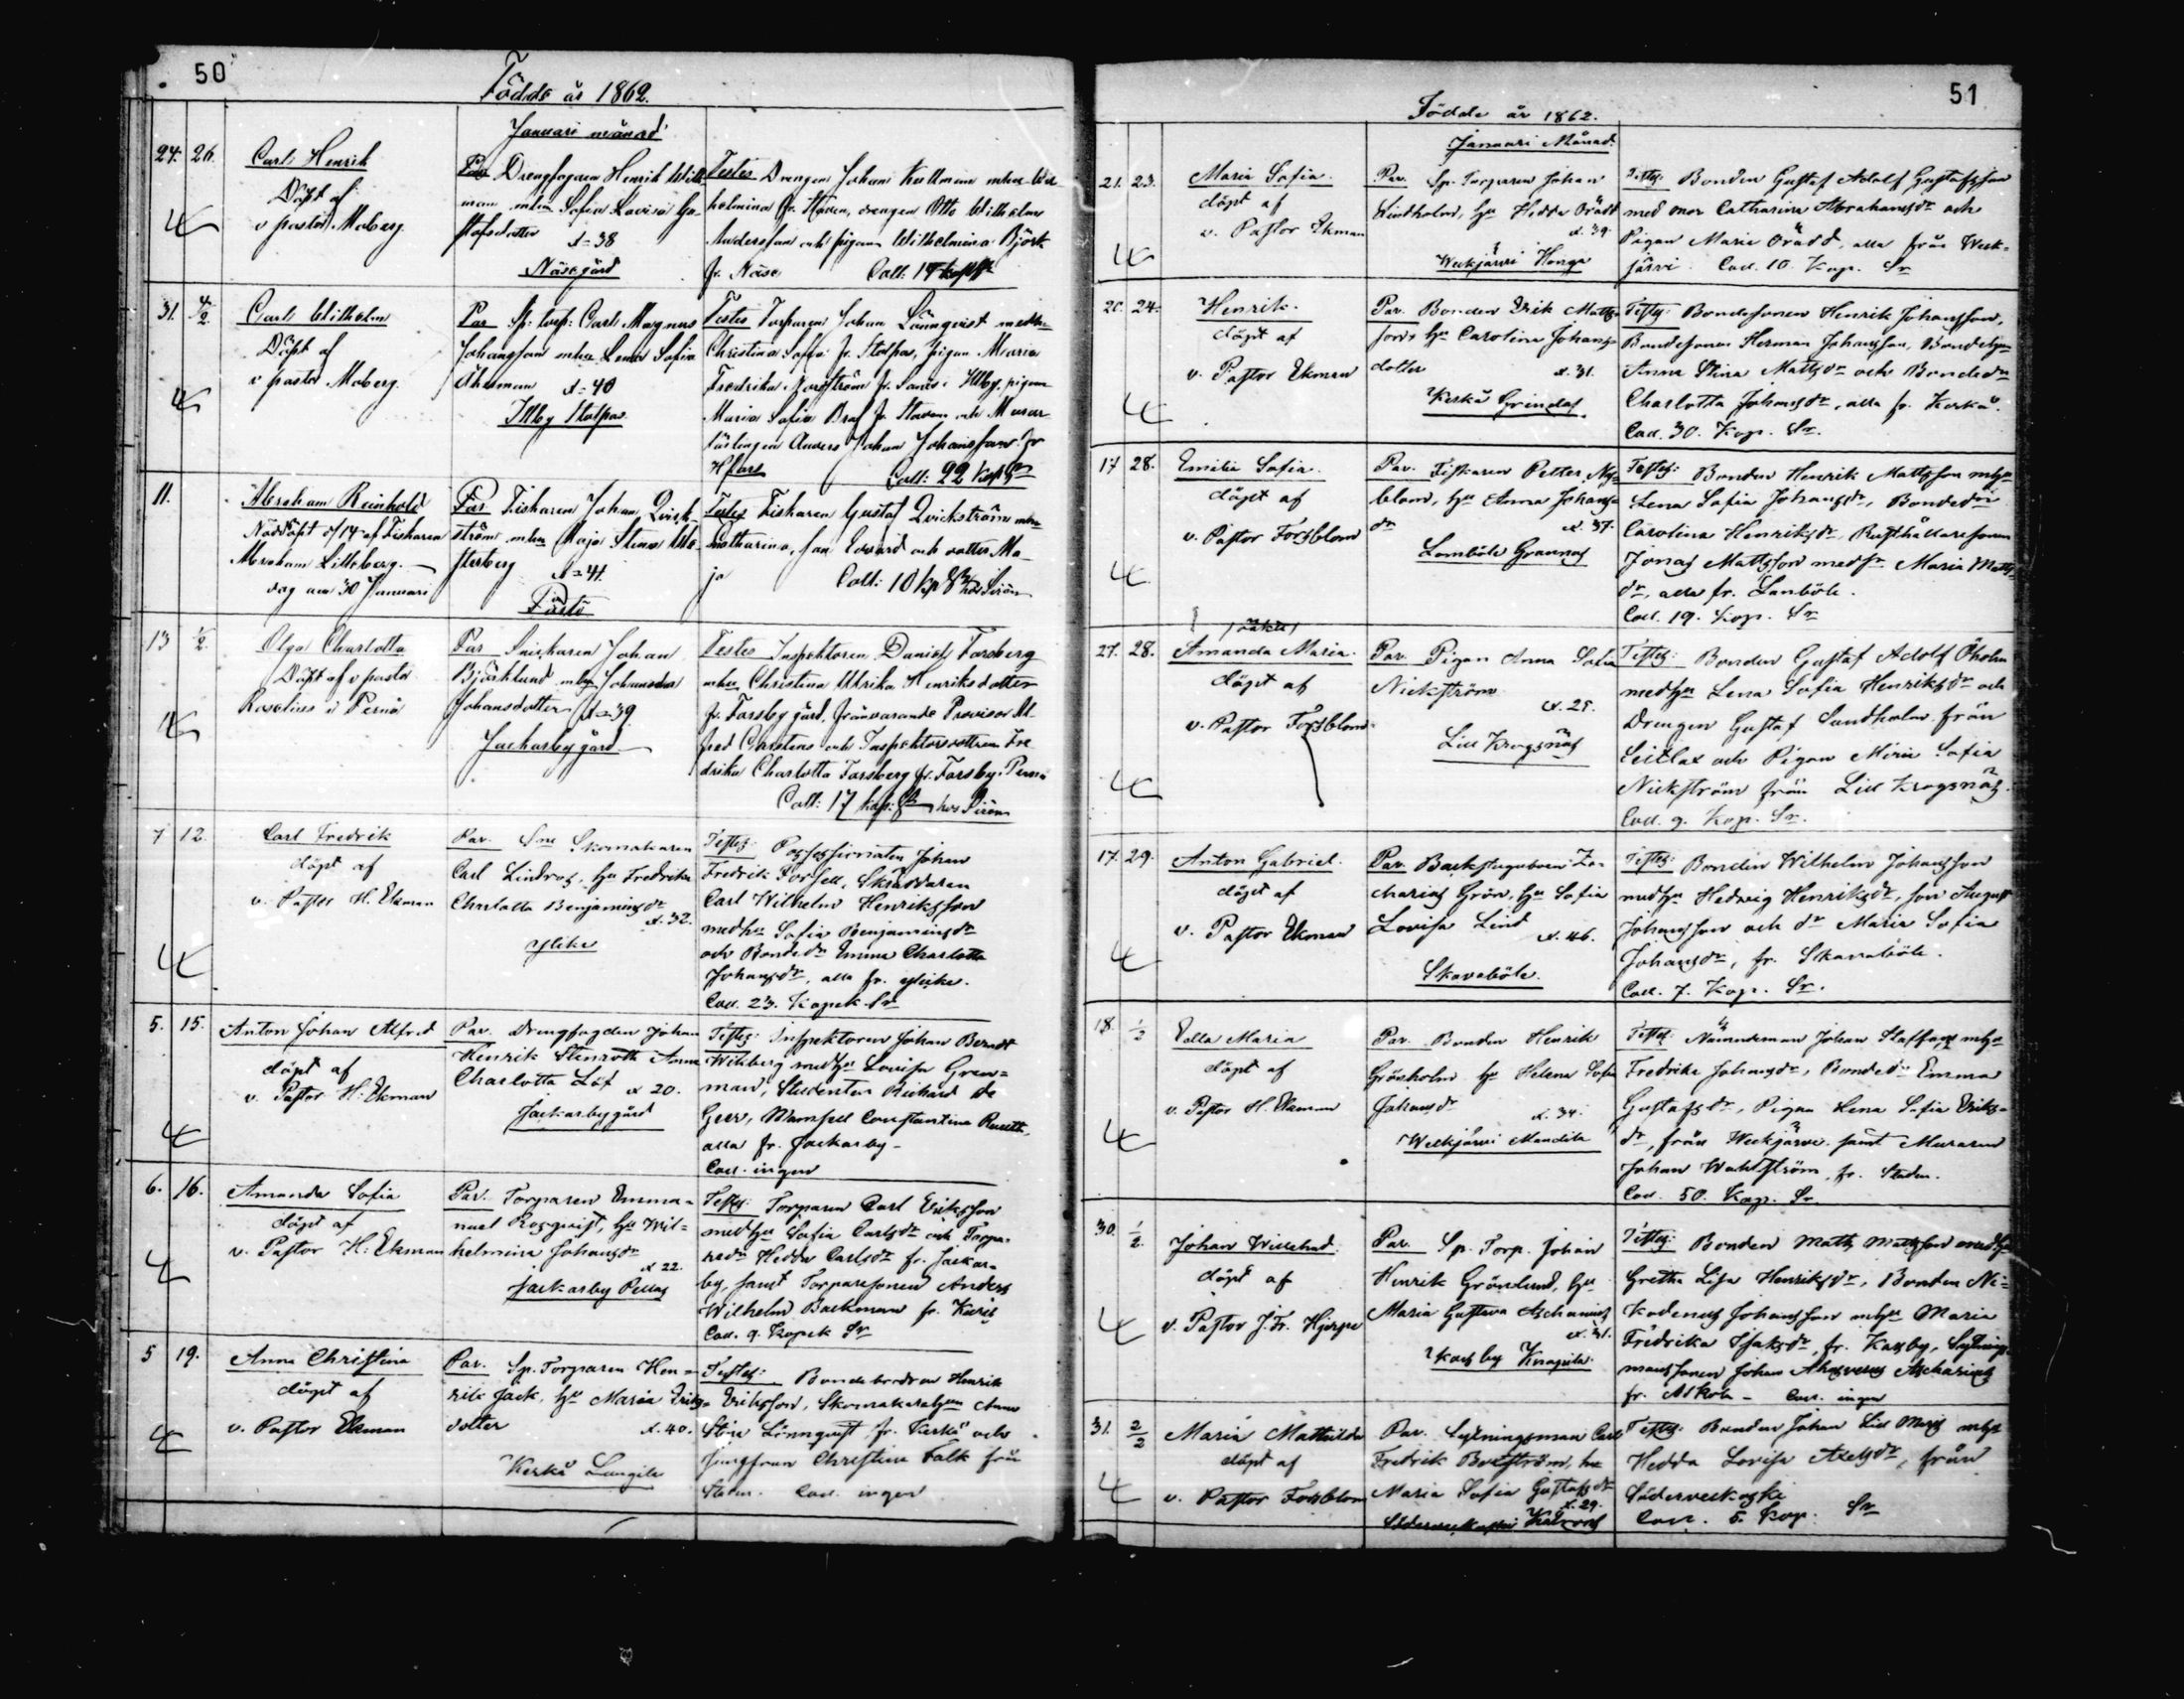 50
Födde år 1862.
Januari månad
24. 26.
Carl Henrik
Döpt af
v pastor Moberg.
Par Drengfogaren Henrik Will-
man mhu Sofia Lovisa Gu-
stafsdotter æ=38
Näsegård
Testes Drengen Johan Kullman mhu Wil-
helmina fr. Staden, drengen Otto Wilhelm
Andersson och pigan Wilhelmina Björk
fr. Näse Coll: 14 kop Sr
31. 4/2
Carl Wilhelm
Döpt af
v pastor Moberg.
Par Sp: torp: Carl Magnus
Johansson mhu Lena Sofia
Åhlman æ=40
Illby Stolpas
Testes Torparen Johan Lönnqvist medhu
Christina Sofia fr. Stolpas, pigan Maria
Fredrika Nordström fr. Illby, pigan
Maria Sofia Braf fr. Staden och Murar-
lärlingen Anders Johan Johansson fr
Coll: 22 kop Sr
11.
Abraham Reinhold
Nöddöpt d/14 af Fiskaren
Abraham Lilleberg.
dag den 30 Januari
Par Fiskaren Johan Qvick-
ström mhu Maja Stina We-
sterberg æ=41.
Pörtö
Testes Fiskaren Gustaf Qvickström mhu
Catharina, son Edvard och dotter Ma-
ja Coll: 10 kop Sr hos Sirén
13 1/2
Olga Charlotta
Döpt af v pastor
Roselius i Pernå
Par Snickaren Johan
Björklund mhu Johanna
Johansdotter æ=39
Jackarby gård
Testes Inspektoren Daniel Forsberg
mhu Christina Ulrika Henriksdotter
fr. Forsby gård, frånvarande Provisor Al-
fred Carstens och Inspektorsdottren Fre
drika Charlotta Forsberg fr. Forsby i Pernå
Coll: 17 kop: Sr hos Sirén
7 12.
Carl Fredrik
döpt af
v. Pastor H. Ekman
Par. Sne Skomakaren
Carl Lindros, hu Fredrika
Charlotta Benjaminsdr
æ. 32.
Ylike
Testes: Possessionaten Johan
Fredrik Forsell, Skräddaren
Carl Wilhelm Henriksson
medhu Sofia Benjaminsdr
och Bondedr Emma Charlotta
Johansdr, alla fr. Ylike.
Coll. 23. Kopek Sr
5. 15.
Anton Johan Alfred
döpt af
v. Pastor H: Ekman
Par. Drengfogden Johan
Henrik Stenroth Anna
Charlotta Löf æ 20.
Jackarby gård
Testes: Inspektoren Johan Berndt
Wikberg medhu Lovisa Gren=
man, Studenten Richard De
Geer, Mamsell Constantina
alla fr. Jackarby -
Coll. ingen
6. 16.
Amanda Sofia
döpt af
v. Pastor H: Ekman
Par. Torparen Emma-
nuel Rosqvist, hu Wil=
helmina Johansdr
æ 22.
Jackarby Pellas
Testes: Torparen Carl Eriksson
medhu Sofia Carlsdr och Torpa-
redr Hedda Carlsdr fr. Jackar-
by, samt Torparesonen Anders
Wilhelm Backman fr. Kuris
Coll. 9. Kopek Sr
5 19.
Anna Christina
döpt af
v. Pastor Ekman
Par. Sp. Torparen Hen=
rik Jack, hu Maria Eriks=
dotter æ. 40.
Kerkå Langila
Testes: Bondebrodren Henrik
Eriksson, Skomakarehun Anna
Stina Lönnqvist fr. Kerkå och
Jungfrun Christina Falk från
Staden. Coll. ingen
51
Födde år 1862.
Januari Månad.
21. 23.
Maria Sofia.
döpt af
v. Pastor Ekman
Par. Sp. Torparen Johan
Lindholm, hu Hedda Orädd
æ. 39.
Weckjärvi Honga
Testes: Bonden Gustaf Adolf Gustafsson
med mor Catharina Abrahamsdr och
Pigan Maria Orädd, alla från Weck-
järvi. Coll. 10. Kop. Sr
20. 24.
Henrik.
döpt af
v. Pastor Ekman
Par. Bonden Erik Matts-
son, hu Carolina Johans-
dotter æ. 31.
Kerkå Grindas
Testes: Bondesonen Henrik Johansson,
Bondesonen Herman Johansson, Bondehun
Anna Stina Mattsdr och Bondedr
Charlotta Johansdr, alla fr. Kerkå.
Coll. 30. Kop. Sr.
17 28.
Emilia Sofia.
döpt af
v. Pastor Forsblom
Par. Fiskaren Petter Ny-
blom, hu Anna Johans-
dr æ. 37.
Lomböle Grannas
Testes: Bonden Henrik Mattsson mhu
Lena Sofia Johansdr, Bondedr
Carolina Henriksdr, Rusthållaresonen
Jonas Mattsson medsr Maria Matts-
dr, alla fr. Lomböle.
Coll. 19. Kop. Sr
27. 28.
/oäkta/
Amanda Maria.
döpt af
v. Pastor Forsblom
Par. Pigan Anna Sofia
Nickström
æ. 25.
Lill Krogsnäs
Testes: Bonden Gustaf Adolf Öholm
medhu Lena Sofia Henriksdr och
Drengen Gustaf Sundholm från
Seitlax och Pigan Maria Sofia
Nickström från Lill Krogsnäs.
Coll. 9. Kop. Sr.
17. 29.
Anton Gabriel.
döpt af
v. Pastor Ekman
Par. Backstugubon Za-
charias Grön, hu Sofia
Lovisa Lind
æ. 46.
Skaveböle.
Testes: Bonden Wilhelm Johansson
medhu Hedvig Henriksdr, son August
Johansson och dr Maria Sofia
Johansdr, fr. Skaveböle.
Coll. 7. Kop. Sr.
18. 1/2
Edla Maria
döpt af
v. Pastor H. Ekman
Par. Bonden Henrik
Grönholm hu Helena Sofia
Johansdr
æ. 34.
Weckjärvi Mandila
Testes: Nämndeman Johan Staffans mhu
Fredrika Johansdr, Bondedr Emma
Gustafsdr, Pigan Lena Sofia Eriks-
dr, från Weckjärvi. samt Muraren
Johan Wahlström, fr. Staden.
Coll. 50. Kop. Sr.
30. 1/2.
Johan Willehad.
döpt af
v. Pastor J. Fr. Hjerpe
Par. Sp. Torp. Johan
Henrik Grönlund, hu
Maria Gustava
æ. 31.
Karsby
Testes: Bonden Matts Mattsson medhu
Gretha Lisa Henriksdr, Bonden Ni-
kodemus Johansson mhu Maria
Fredrika Isaksdr, fr. Karsby, Sytnings-
manssonen Johan Ahasverus
fr. Askola - Coll. ingen
31. 2/2
Maria Mathilda
döpt af
v. Pastor Forsblom
Par. Sytningsman Carl
Fredrik Boström, hu
Maria Sofia Gustafsdr
æ. 29.
Söderveckoski
Testes: Bonden Johan Lill Mars mhu
Hedda Lovisa Axelsdr, från
Söderveckoski
Coll. 5. Kop. Sr